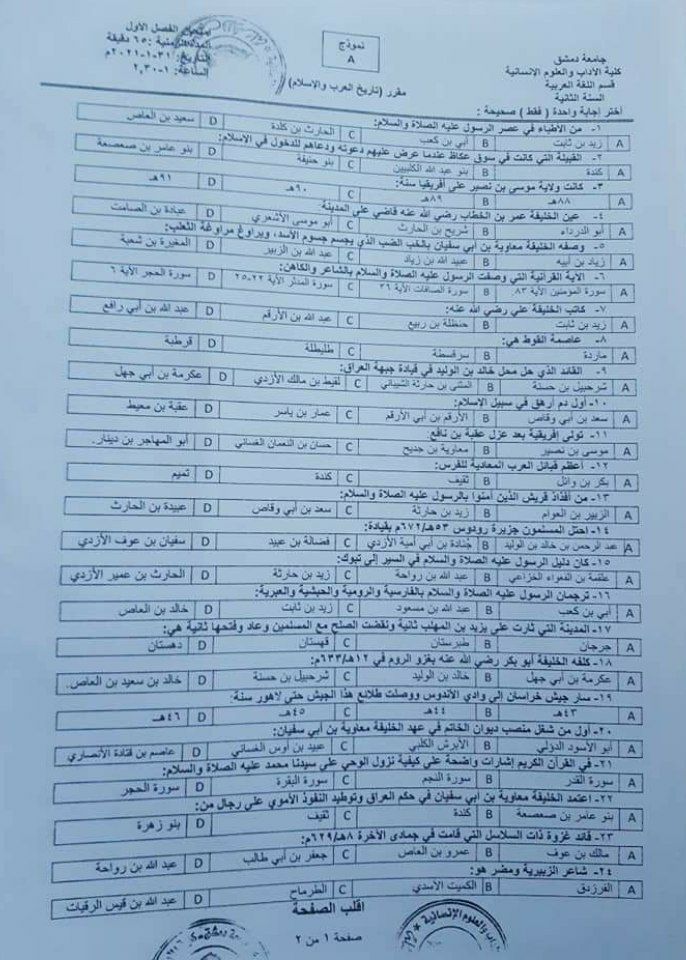 جامعة دمشق
كلية الآداب والعلوم الإنسانية
قسم اللغة العربية
السنة الثانية
نموذج
A
مقرر (تاريخ العرب والإسلام)
امتحان الفصل الأول
المدة الزمنية : ٦٥ دقيقة
التاريخ: ٣١-١-٢٠٢١م
الساعة: ١-٢,٣٠
أختر إجابة واحدة ( فقط ) صحيحة :
١- من الأطباء في عصر الرسول عليه الصلاة والسلام:
A زيد بن ثابت B أبي بن كعب C الحارث بن كلدة D سعيد بن العاص
٢- القبيلة التي كانت في سوق عكاظ عندما عرض عليهم دعوته ودعاهم للدخول في الإسلام:
A كندة B بنو عبد الله الكلبيين C بنو حنيفة D بنو عامر بن صعصعة
٣- كانت ولاية موسى بن نصير على أفريقيا سنة:
A ٨٨هـ B ٨٩هـ C ٩٠هـ D ٩١هـ
٤- عين الخليفة عمر بن الخطاب رضي الله عنه قاضي على المدينة
A أبو الدرداء B شريح بن الحارث C أبو موسى الأشعري D عبادة بن الصامت
٥- وصفه الخليفة معاوية بن أبي سفيان بالخب الضب الذي يجسم جسوم الأسد، ويراوغ مراوغة الثعلب:
A زياد بن أبيه B عبيد الله بن زياد C عبد الله بن الزبير D المغيرة بن شعبة
٦- الآية القرآنية التي وصفت الرسول عليه الصلاة والسلام بالشاعر والكاهن:
A سورة المومنين الآية ٨٣. B سورة الصافات الآية ٣٦ C سورة المدثر الآية ٢٢-٢٥ D سورة الحجر الآية ٦
٧- كاتب الخليفة علي رضي الله عنه:
A زيد بن ثابت B حنظلة بن ربيع C عبد الله بن الأرقم D عبد الله بن أبي رافع
٨- عاصمة القوط هي:
A ماردة B سرقسطة C طليطلة D قرطبة
٩- القائد الذي حل محل خالد بن الوليد في قيادة جبهة العراق:
A شرحبيل بن حسنة B المثنى بن حارثة الشيباني C لقيط بن مالك الأزدي D عكرمة بن أبي جهل
١٠- أول دم أرهق في سبيل الإسلام:
A سعد بن أبي وقاص B الأرقم بن أبي الأرقم C عمار بن ياسر D عقبة بن معيط
١١- تولى إفريقية بعد عزل عقبة بن نافع.
A موسى بن نصير B معاوية بن حديج C حسان بن النعمان الغساني D أبو المهاجر بن دينار.
١٢- أعظم قبائل العرب المعادية للفرس:
A بكر بن وائل B ثقيف C كندة D تميم
١٣- من أفذاذ قريش الذين آمنوا بالرسول عليه الصلاة والسلام:
A الزبير بن العوام B زيد بن حارثة C سعد بن أبي وقاص D عبيدة بن الحارث
١٤- احتل المسلمون جزيرة رودوس ٥٣هـ/٦٧٢م بقيادة:
A عبد الرحمن بن خالد بن الوليد B جُنادة بن أبي أمية الأزدي C فضالة بن عبيد D سفيان بن عوف الأزدي
١٥- كان دليل الرسول عليه الصلاة والسلام في السير إلى تبوك:
A علقمة بن الفغواء الخزاعي B عبد الله بن رواحة C زيد بن حارثة D الحارث بن عمير الأزدي
١٦- ترجمان الرسول عليه الصلاة والسلام بالفارسية والرومية والحبشية والعبرية:
A أبي بن كعب B عبد الله بن مسعود C زيد بن ثابت D خالد بن العاص
١٧- المدينة التي ثارت على يزيد بن المهلب ثانية ونقضت الصلح مع المسلمين وعاد وفتحها ثانية هي:
A جرجان B طبرستان C قهستان D دهستان
١٨- كلفه الخليفة أبو بكر رضي الله عنه بغزو الروم في ١٢هـ/٦٣٣م:
A عكرمة بن أبي جهل B خالد بن الوليد C شرحبيل بن حسنة D خالد بن سعيد بن العاص.
١٩- سار جيش خراسان إلى وادي الاندوس ووصلت طلائع هذا الجيش حتى لاهور سنة:
A ٤٣هـ B ٤٤هـ C ٤٥هـ D ٤٦هـ
٢٠- أول من شغل منصب ديوان الخاتم في عهد الخليفة معاوية بن أبي سفيان:
A أبو الأسود الدولي B الأبرش الكلبي C عبيد بن أوس الغساني D عاصم بن قتادة الأنصاري
٢١- في القرآن الكريم إشارات واضحة على كيفية نزول الوحي على سيدنا محمد عليه الصلاة والسلام:
A سورة القدر B سورة النجم C سورة البقرة D سورة الحجر
٢٢- اعتمد الخليفة معاوية بن أبي سفيان في حكم العراق وتوطيد النفوذ الأموي على رجال من:
A بنو عامر بن صعصعة B كندة C ثقيف D بنو زهرة
٢٣- قائد غزوة ذات السلاسل التي قامت في جمادى الآخرة ٨هـ/٦٢٩م:
A مالك بن عوف B عمرو بن العاص C جعفر بن أبي طالب D عبد الله بن رواحة
٢٤- شاعر الزبيرية ومضر هو:
A الفرزدق B الكميت الأسدي C الطرماح D عبد الله بن قيس الرقيات
اقلب الصفحة
صفحة ١ من ٢